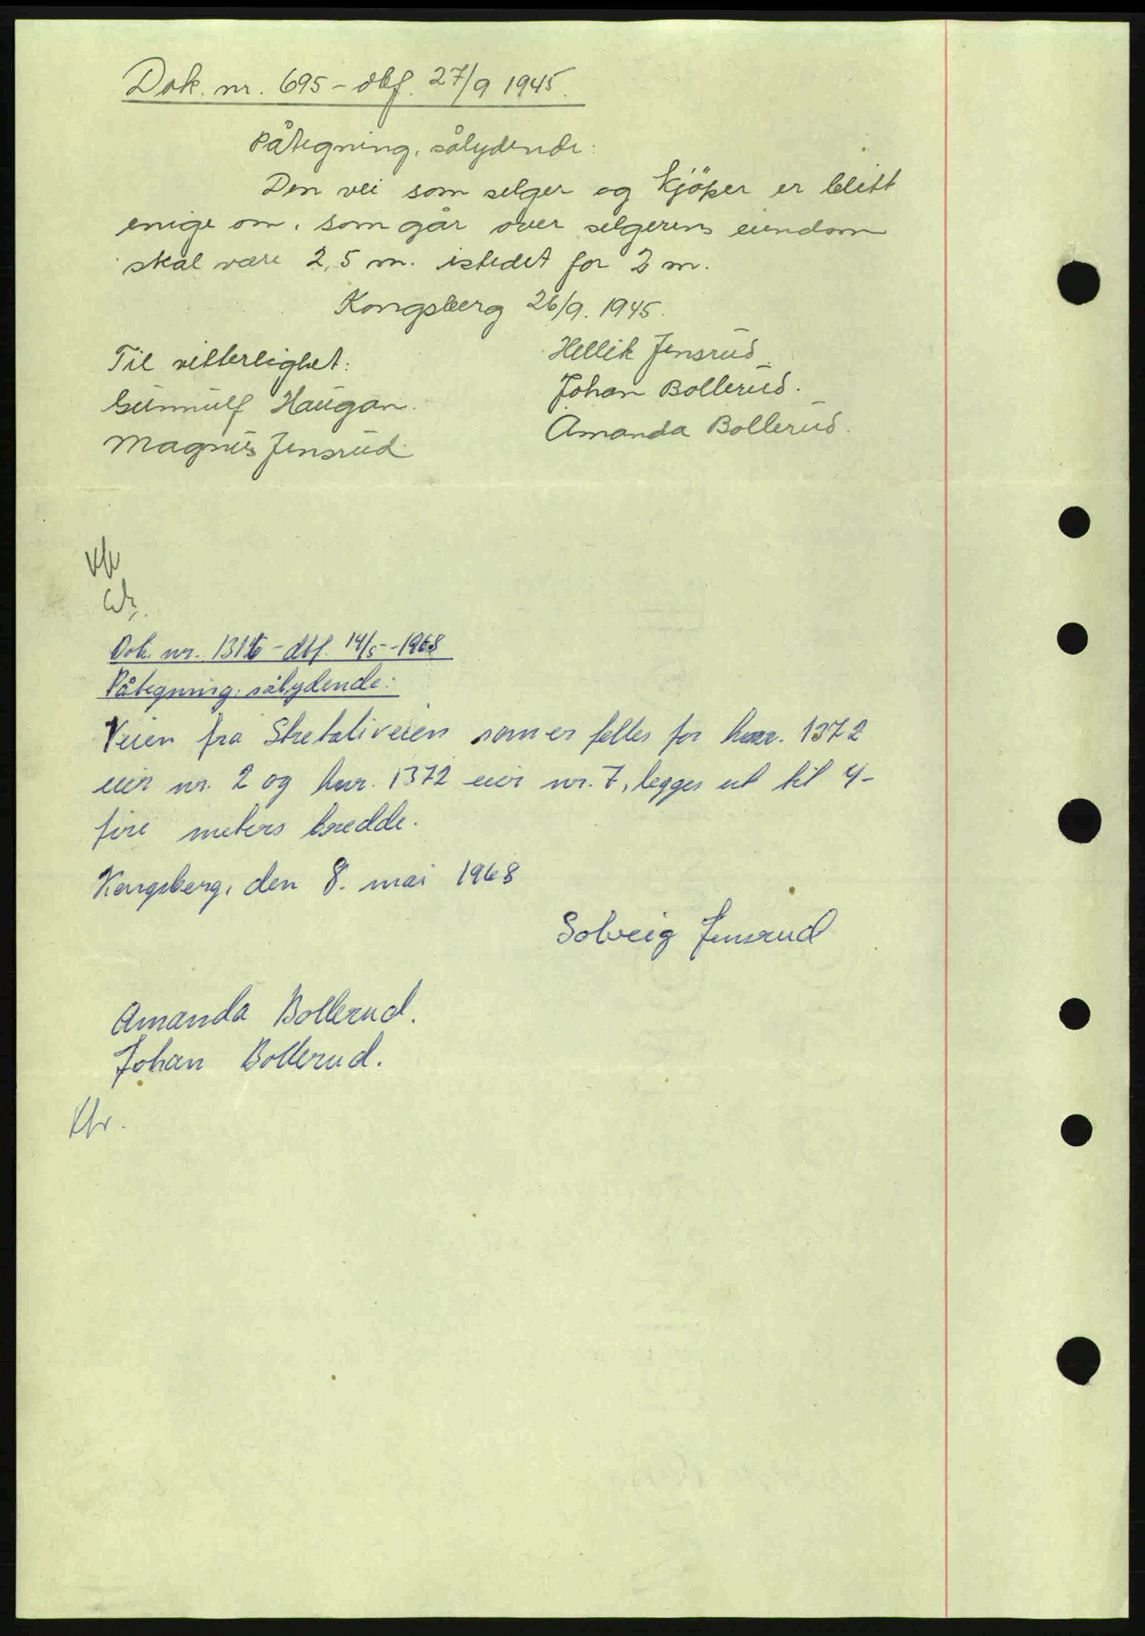 Dok. nr. 695 - dbf. 27/9 1945.
Påtegning, sålydende:
Den vei som selger og kjöper er blitt
enige om, som går over selgerens eiendom
skal være 2,5 m. istedet for 2 m.
Kongsberg 26/9. 1945.
Til vitterlighet:
Gunnulf Haugan.
Magnus Jensrud.
Hellik Jensrud
Johan Bollerud.
Amanda Bollerud.
Dok. nr. 1316 - dbf. 14/5 - 1968
Påtegning, sålydende:
Veien fra som er felles for hnr. 1372
eier nr. 2 og hnr. 1372 eier nr. 7, legges ut til 4-
fire meters bredde.
Kongsberg, den 8. mai 1968
Solveig Jensrud
Amanda Bollerud.
Johan Bollerud.